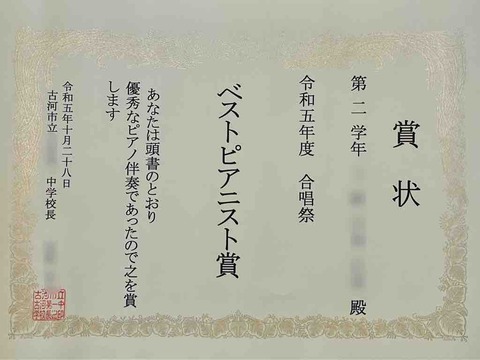 賞状
第二学年 殿
令和五年度 合唱祭
ベストピアニスト賞
あなたは頭書のとおり
優秀なピアノ伴奏であったので之を賞
します
令和五年十月二十八日
古河市立 中学校長